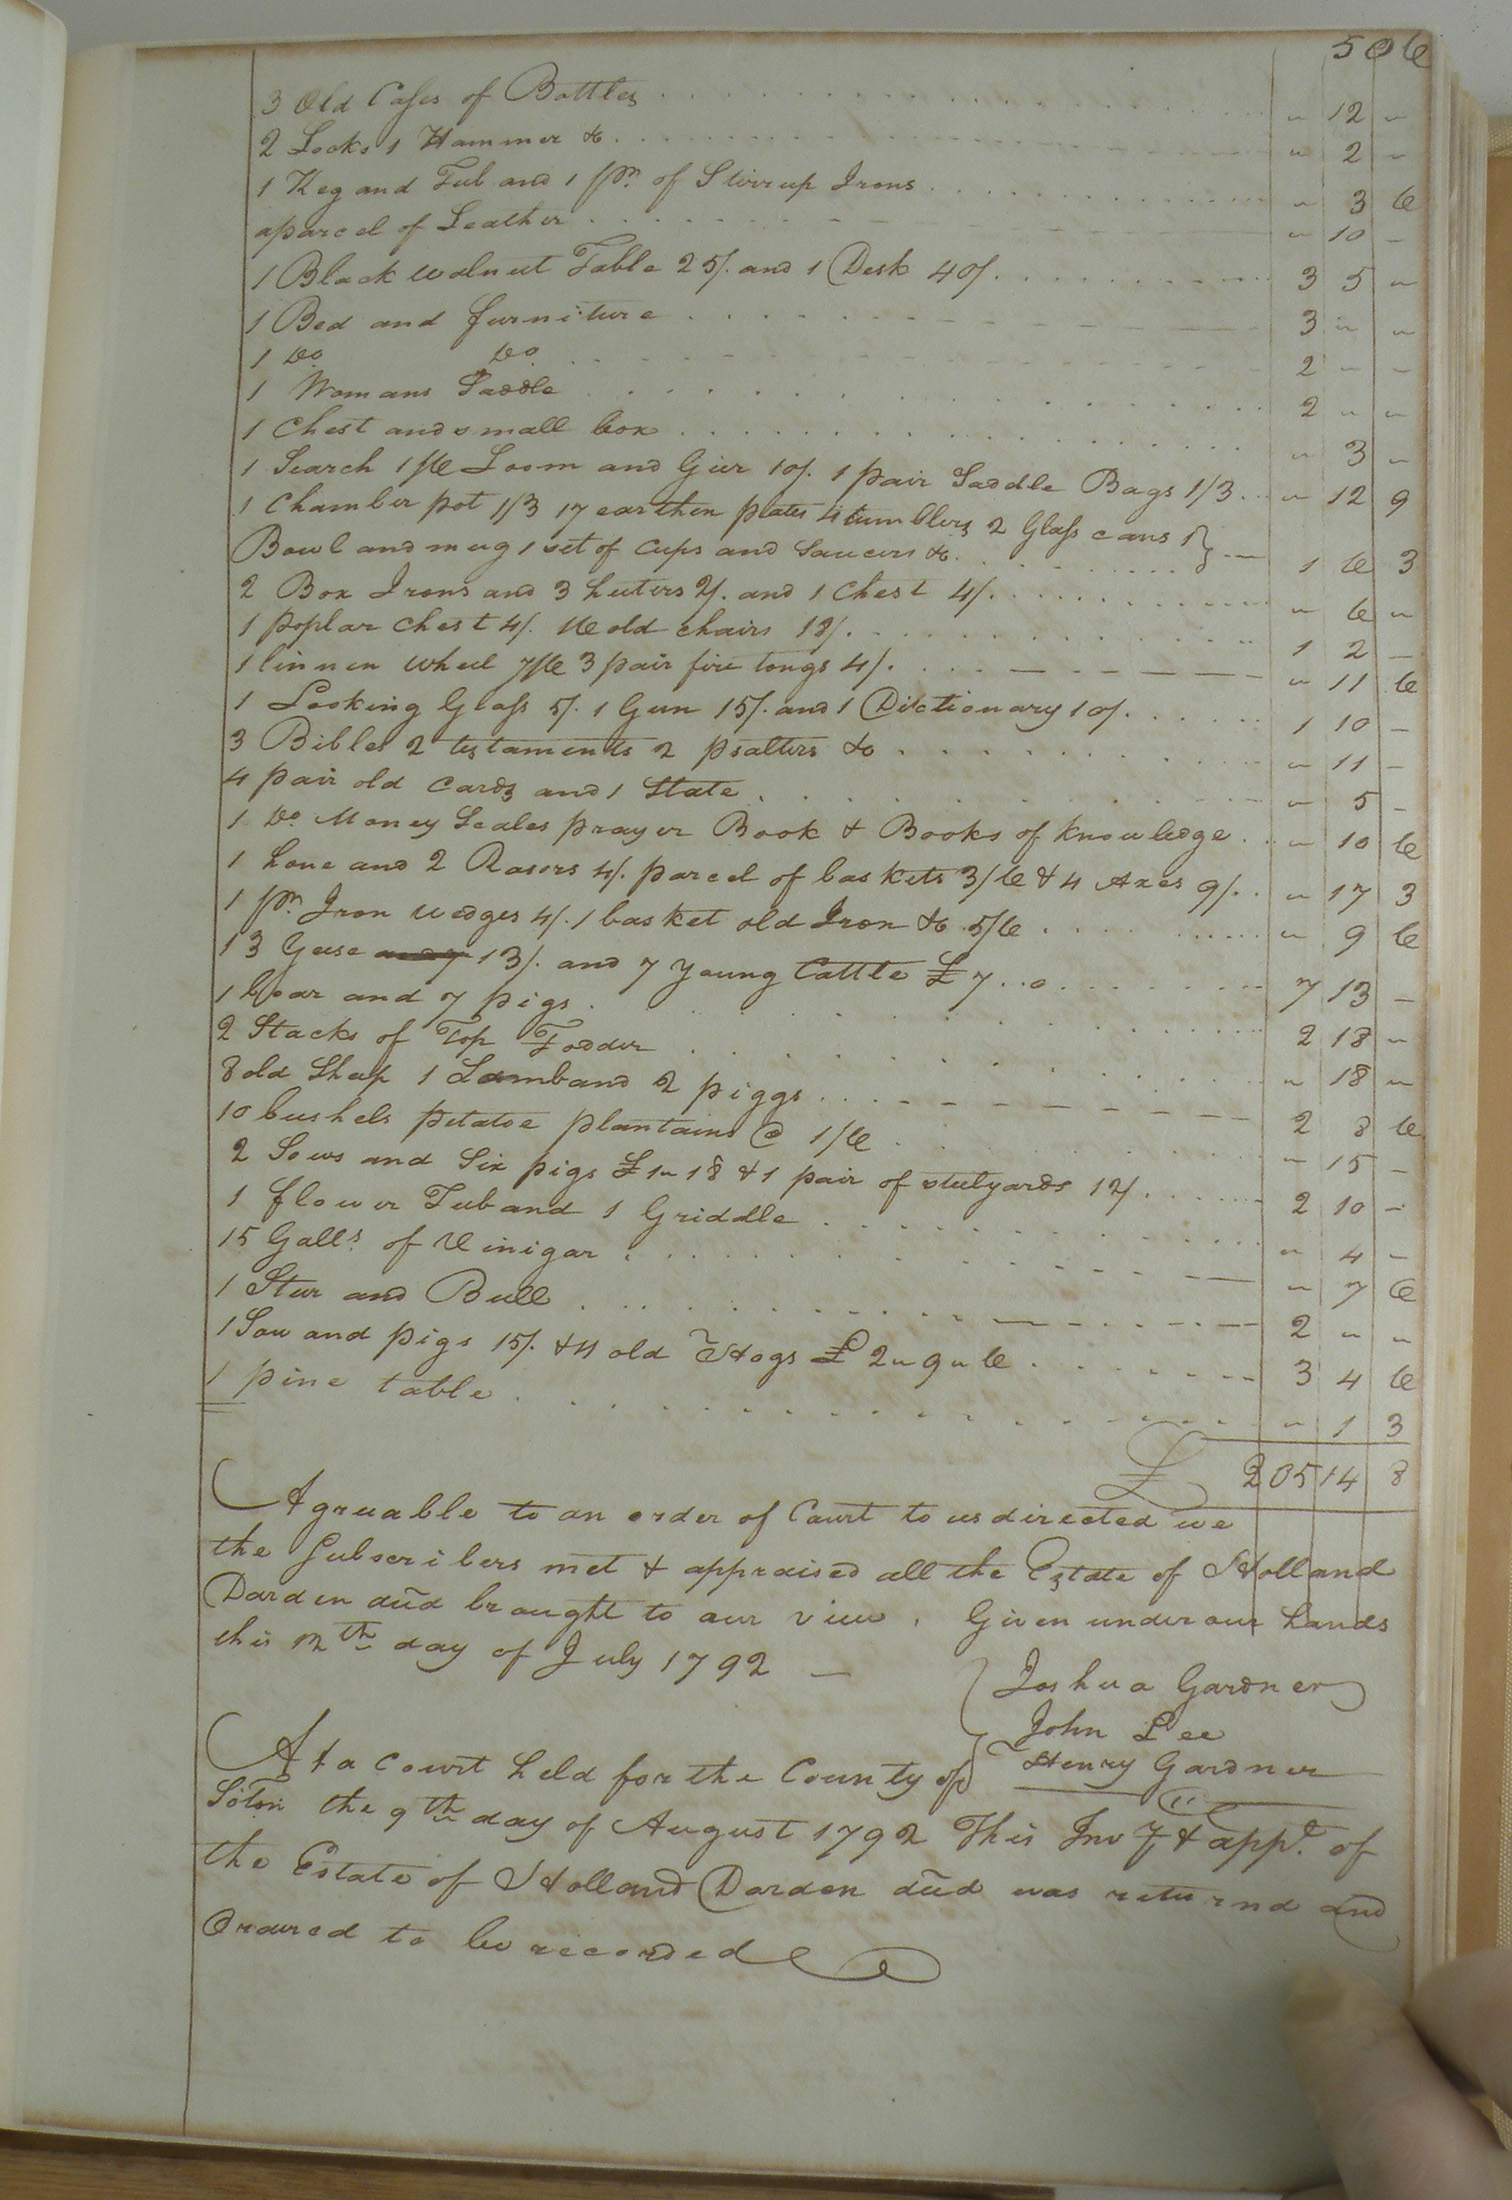 506
3 Old Cases of Bottles - 12 -
2 Locks 1 Hammer &c - 2 -
1 Keg and Tub and 1 pr. of Stirrup Irons - 3 6
a parcel of Leather - 10 -
1 Black walnut Table 25/. and 1 Desk 40/. 3 5 -
1 Bed and furniture 3 - -
1 Do. Do. 2 - -
1 Womans Saddle 2 - -
1 Chest and small box - 3 -
1 Search 1/6 Loom and Gier 10/. 1 pair Saddle Bags 1/3 - 12 9
1 Chamber pot 1/3 17 earthen plates 4 tumblers 2 Glass cans 1
Bowl and mug 1 set of Cups and Saucers &c. 1 6 3
2 Box Irons and 3 heaters 2/. and 1 Chest 4/. - 6 -
1 poplar chest 4/. 16 old chairs 18/. 1 2 -
1 linnen wheel 7/6 3 pair fire tongs 4/. - 11 6
1 Looking Glass 5/. 1 Gun 15/. and 1 Dictionary 10/. 1 10 -
3 Bibles 2 testaments 2 psalters &c - 11 -
4 pair old Cards and 1 State - 5 -
1 Do. Money Scales prayer Book & Books of knowledge - 10 6
1 hone and 2 Rasors 4/. parcel of baskets 3/6 & 4 Axes 9/. - 17 3
1 pr. Iron wedges 4/. 1 basket old Iron &c. 5/6 - 9 6
13 Geese 13/. and 7 young Cattle £7..0 7 13 -
1 boar and 7 pigs 2 18 -
2 Stacks of Top Fodder - 18 -
8 old Sheep 1 Lamb and 2 piggs 2 8 6
10 bushels petatoe plantains @ 1/6 - 15 -
2 Sows and Six pigs £1 " 18 & 1 pair of steelyards 12/. 2 10 -
1 flower Tub and 1 Griddle - 4 -
15 Galls. of Vinigar - 7 6
1 Steer and Bull 2 - -
1 Sow and pigs 15/. & 4 old Hogs £2 " 9 " 6 3 4 6
1 pine table - 1 3
£ 205 14 8
Agreeable to an order of Court to us directed we
the Subscribers met & appraised all the Estate of Holland
Darden decd brought to our view. Given under our hands
this 12th day of July 1792 —
Joshua Gardner
John Lee
Henry Gardner
At a Court held for the County of
Soton the 9th day of August 1792 This Invy & appt. of
the Estate of Holland Darden decd was returnd and
Ordered to be recorded